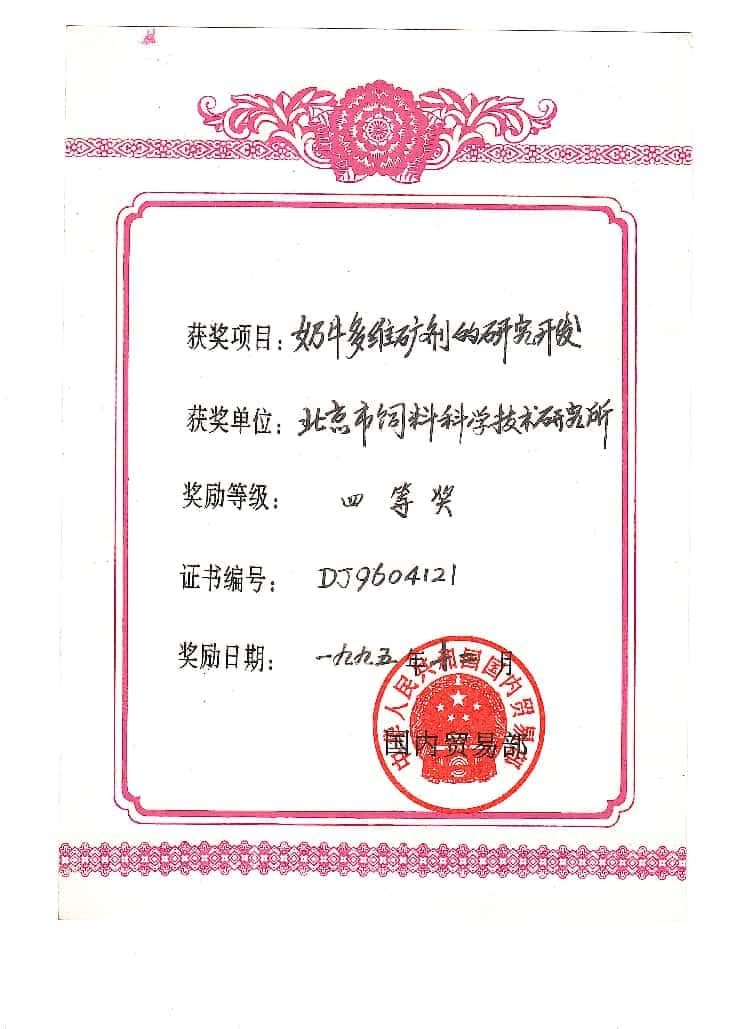 获奖项目：奶牛多维矿剂的研究开发
获奖单位：北京市饲料科学技术研究所
奖励等级：四等奖
证书编号：DJ9604121
奖励日期：一九九五年十二月
中华人民共和国国内贸易部
国内贸易部